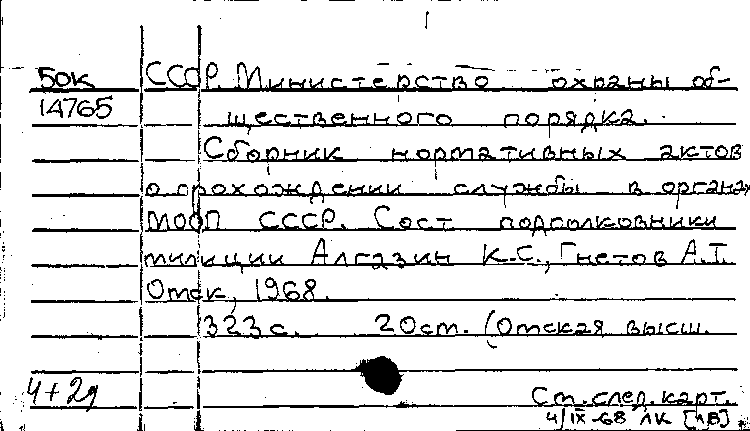 БОК СССР. Министерство охраны об-
14765 щественного порядка.
Сборник нормативных актов
о прохождении службы в органах
МООП СССР. Сост подполковники
милиции Алгазин К.С., Гнетов А.Т.
Омск, 1968.
323 с. 20 см. (Омская высш.
4+2д См. след. карт.
4/IX-68 ЛК [ЛВ]